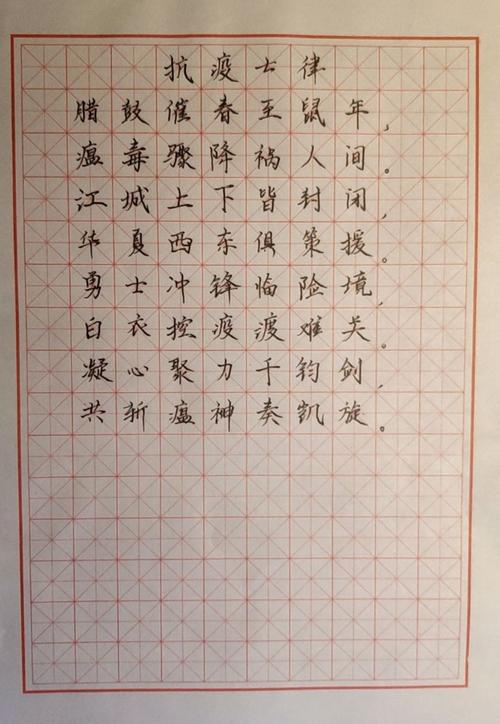 抗疫士律
腊鼓催春至鼠年，
瘟毒骤降祸人间。
江城上下皆封闭，
华夏西东俱策援。
勇士冲锋临险境，
白衣控疫渡难关。
凝心聚力千钧剑，
共斩瘟神奏凯旋。